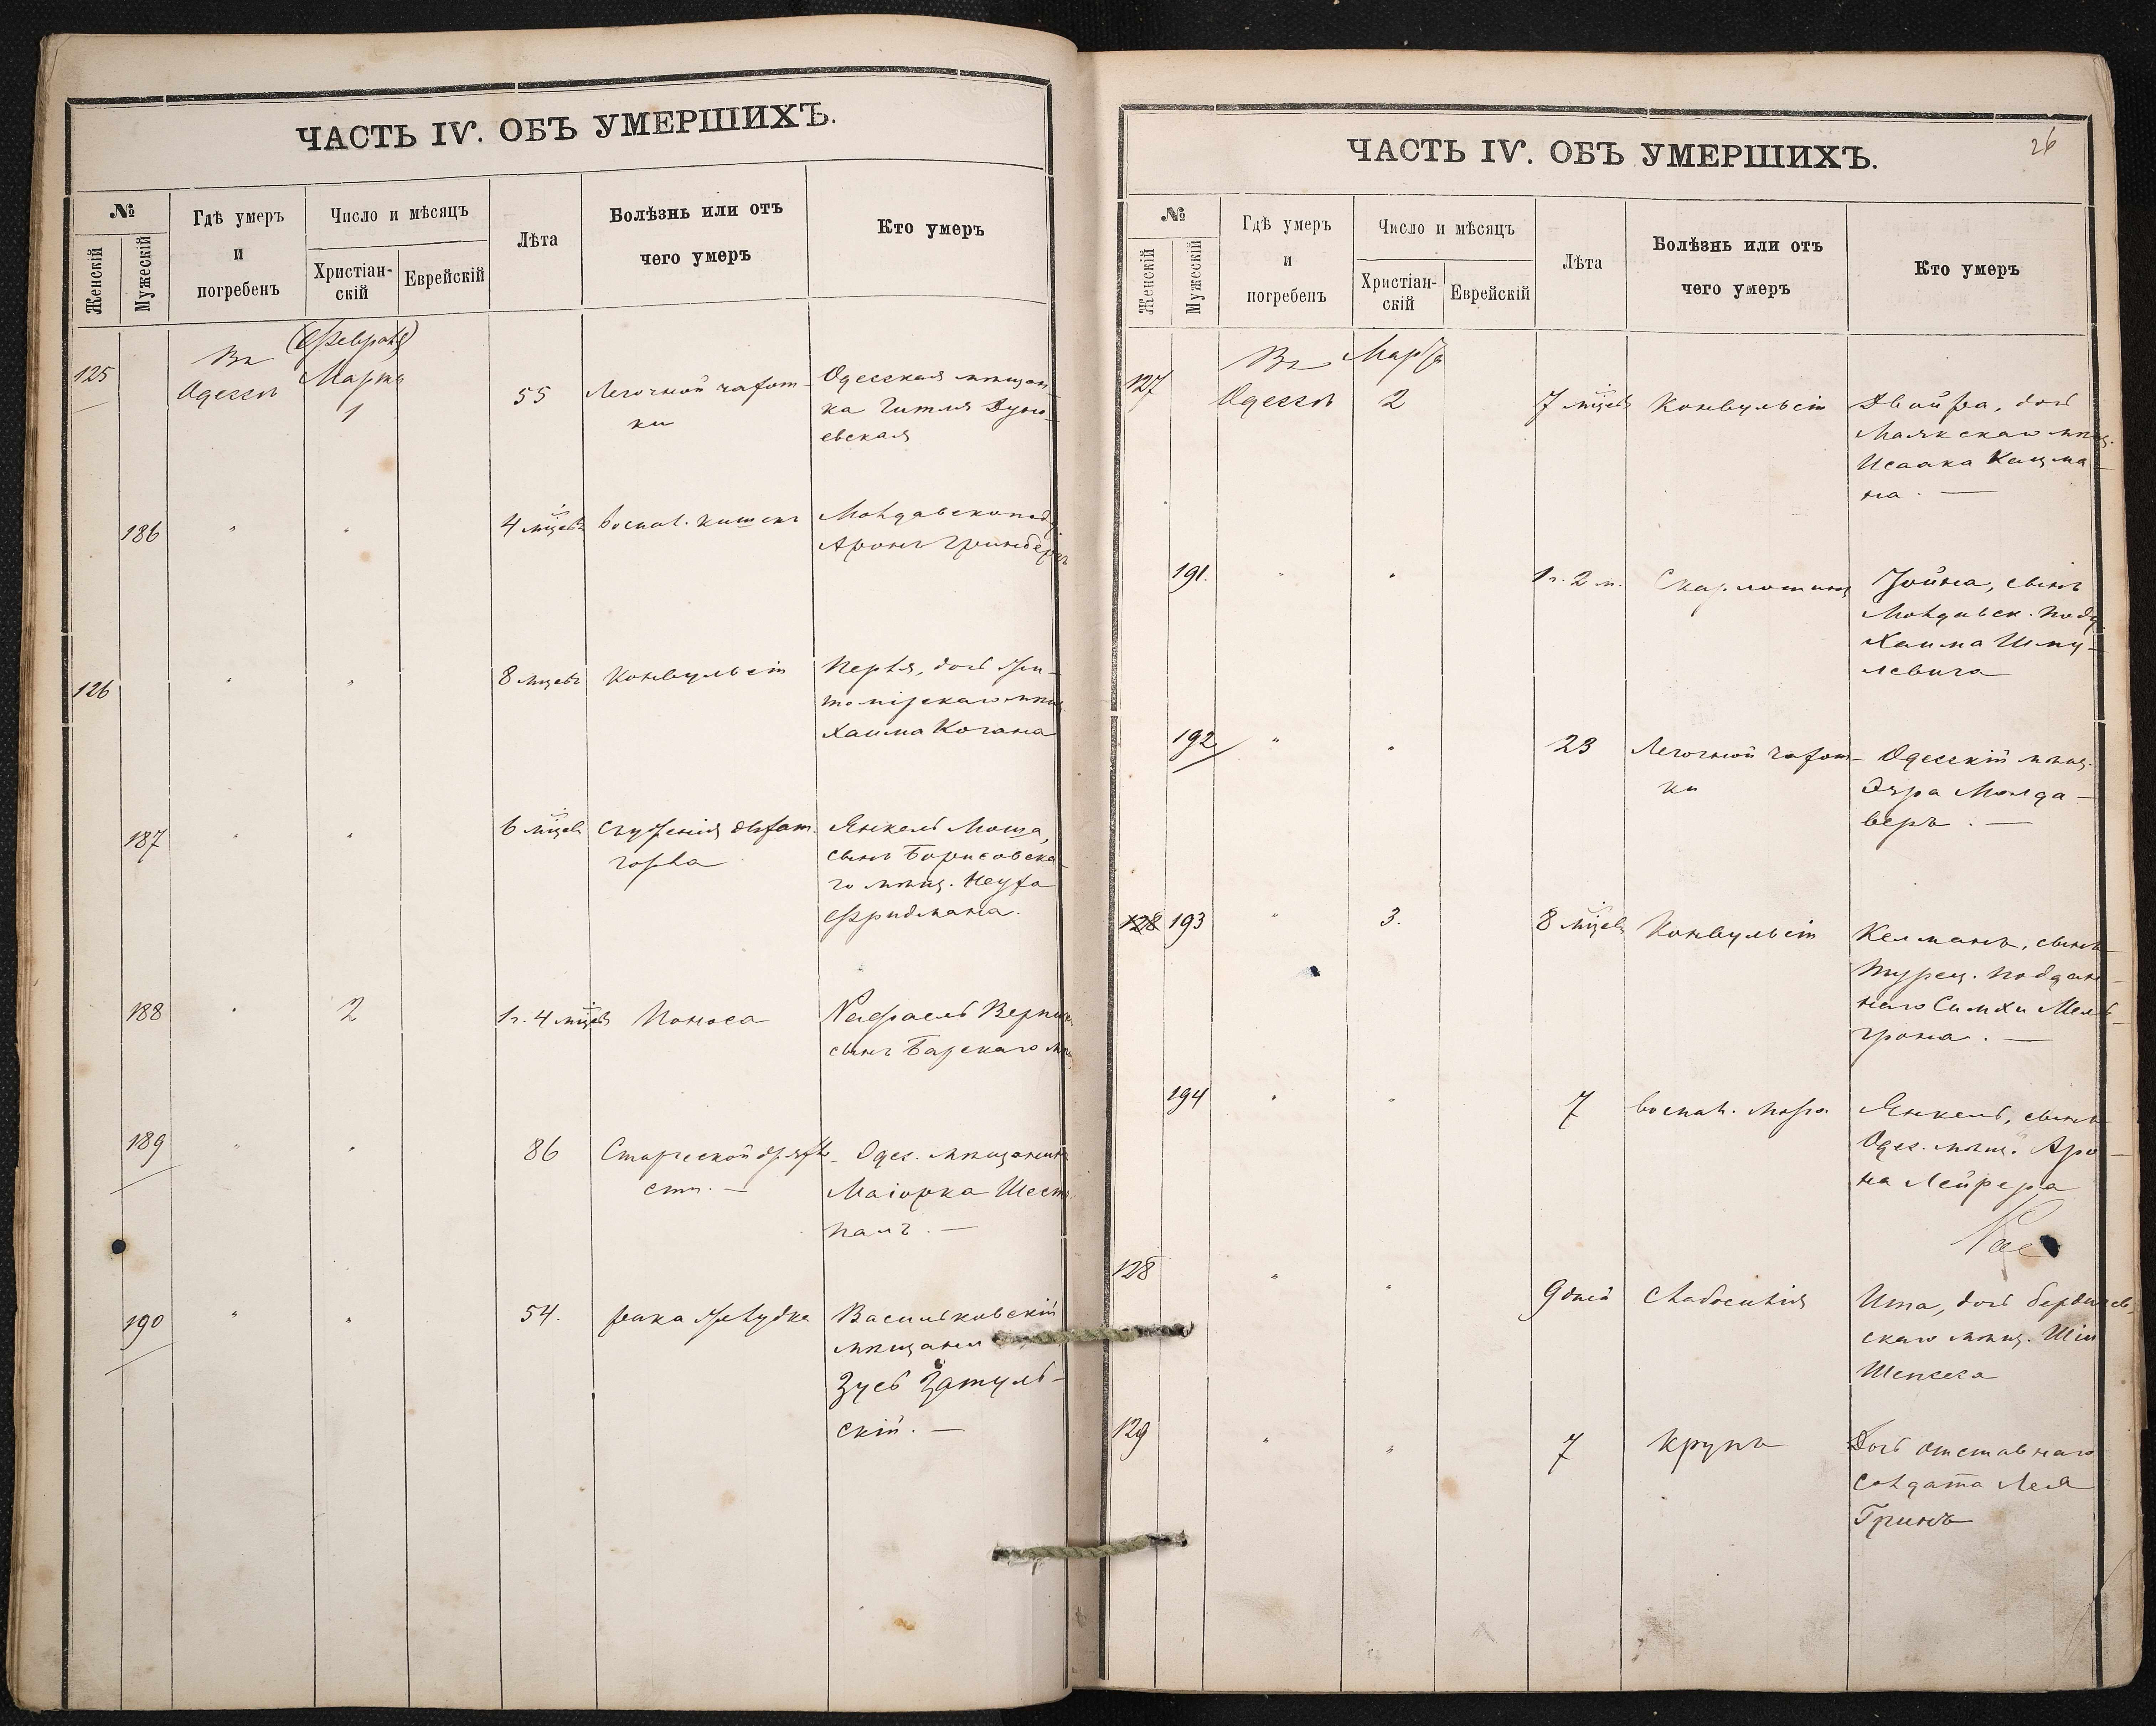 ЧАСТЬ IV. ОБЪ УМЕРШИХЪ.
№
Женскій
Мужескій
Гдѣ умеръ
и
погребенъ
Число и мѣсяцъ
Христіан-
скій
Еврейскій
Лѣта
Болѣзнь или отъ
чего умеръ
Кто умеръ
125
Въ
Одессѣ
(Февраля)
Марта
1
55
Легочной чахот-
ки
Одесская мѣщан
ка Гитля
евская
186
"
"
4 мѣсяцъ
воспал. кишекъ
Молдавскоподд
Аронъ Гринбергъ
126
"
"
8 мѣсяцъ
Конвульсіи
Перля, дочь Жи-
томірскаго мѣщ.
Хаима Когана
187
"
"
6 мѣсяцъ
Съуженія дыхат.
горла
Янкель Моша,
сынъ Борисовска-
го мѣщ.
Фридмана.
188
"
2
1 г. 4 мѣсяцъ
Поноса
Рафаель
сынъ Барскаго мѣщ
189
"
"
86
Старческой дряхло-
сти. —
Одес. мѣщанинъ
Маіорка
палъ. —
190
"
"
54.
рака желудка
Васильковскій
мѣщанин
Зусь Затуль-
скій. —
ЧАСТЬ IV. ОБЪ УМЕРШИХЪ.
26
№
Женскій
Мужескій
Гдѣ умеръ
и
погребенъ
Число и мѣсяцъ
Христіан-
скій
Еврейскій
Лѣта
Болѣзнь или отъ
чего умеръ
Кто умеръ
127
Въ
Одессѣ
Марта
2
7 мѣсяцъ
Конвульсіи
Двойра, дочь
Маякскаго мѣщ.
Исаака Кацма-
на. —
191.
"
"
1 г. 2 м.
Скарлатина
Іойна, сынъ
Молдавск. подд.
Хаима Шму-
левича
192
"
"
23
Легочной чахот-
ки
Одесскій мѣщ.
Эзра Молда-
веръ. —
128 193
"
3.
8 мѣсяцъ
Конвульсіи
Келманъ, сынъ
Турец. поддан-
наго Симхи Миль-
грома. —
194
"
"
7
воспал. мозга
Янкель, сынъ
Одес. мѣщ. Аро-
на Лейфера
128
"
"
9 дней
слабосилія
Ита, дочь бердичев
скаго мѣщ.
Шепсеса
129
"
"
7
крупъ
Дочь отставнаго
солдата Лея
Гринъ